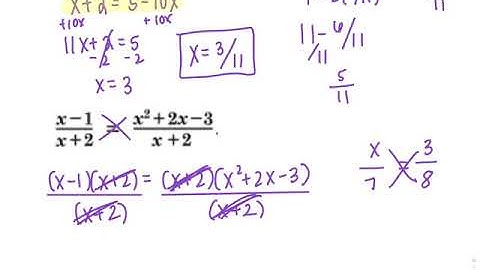 x+2 = 5-10x
+10x +10x
11x+2=5
-2 -2
x = 3
x = 3/11
11 - 6/11
/11
5/11
11
(x-1)/(x+2) = (x²+2x-3)/(x+2).
(x-1)(x+2)/(x+2) = (x+2)(x²+2x-3)/(x+2)
x/7 = 3/8